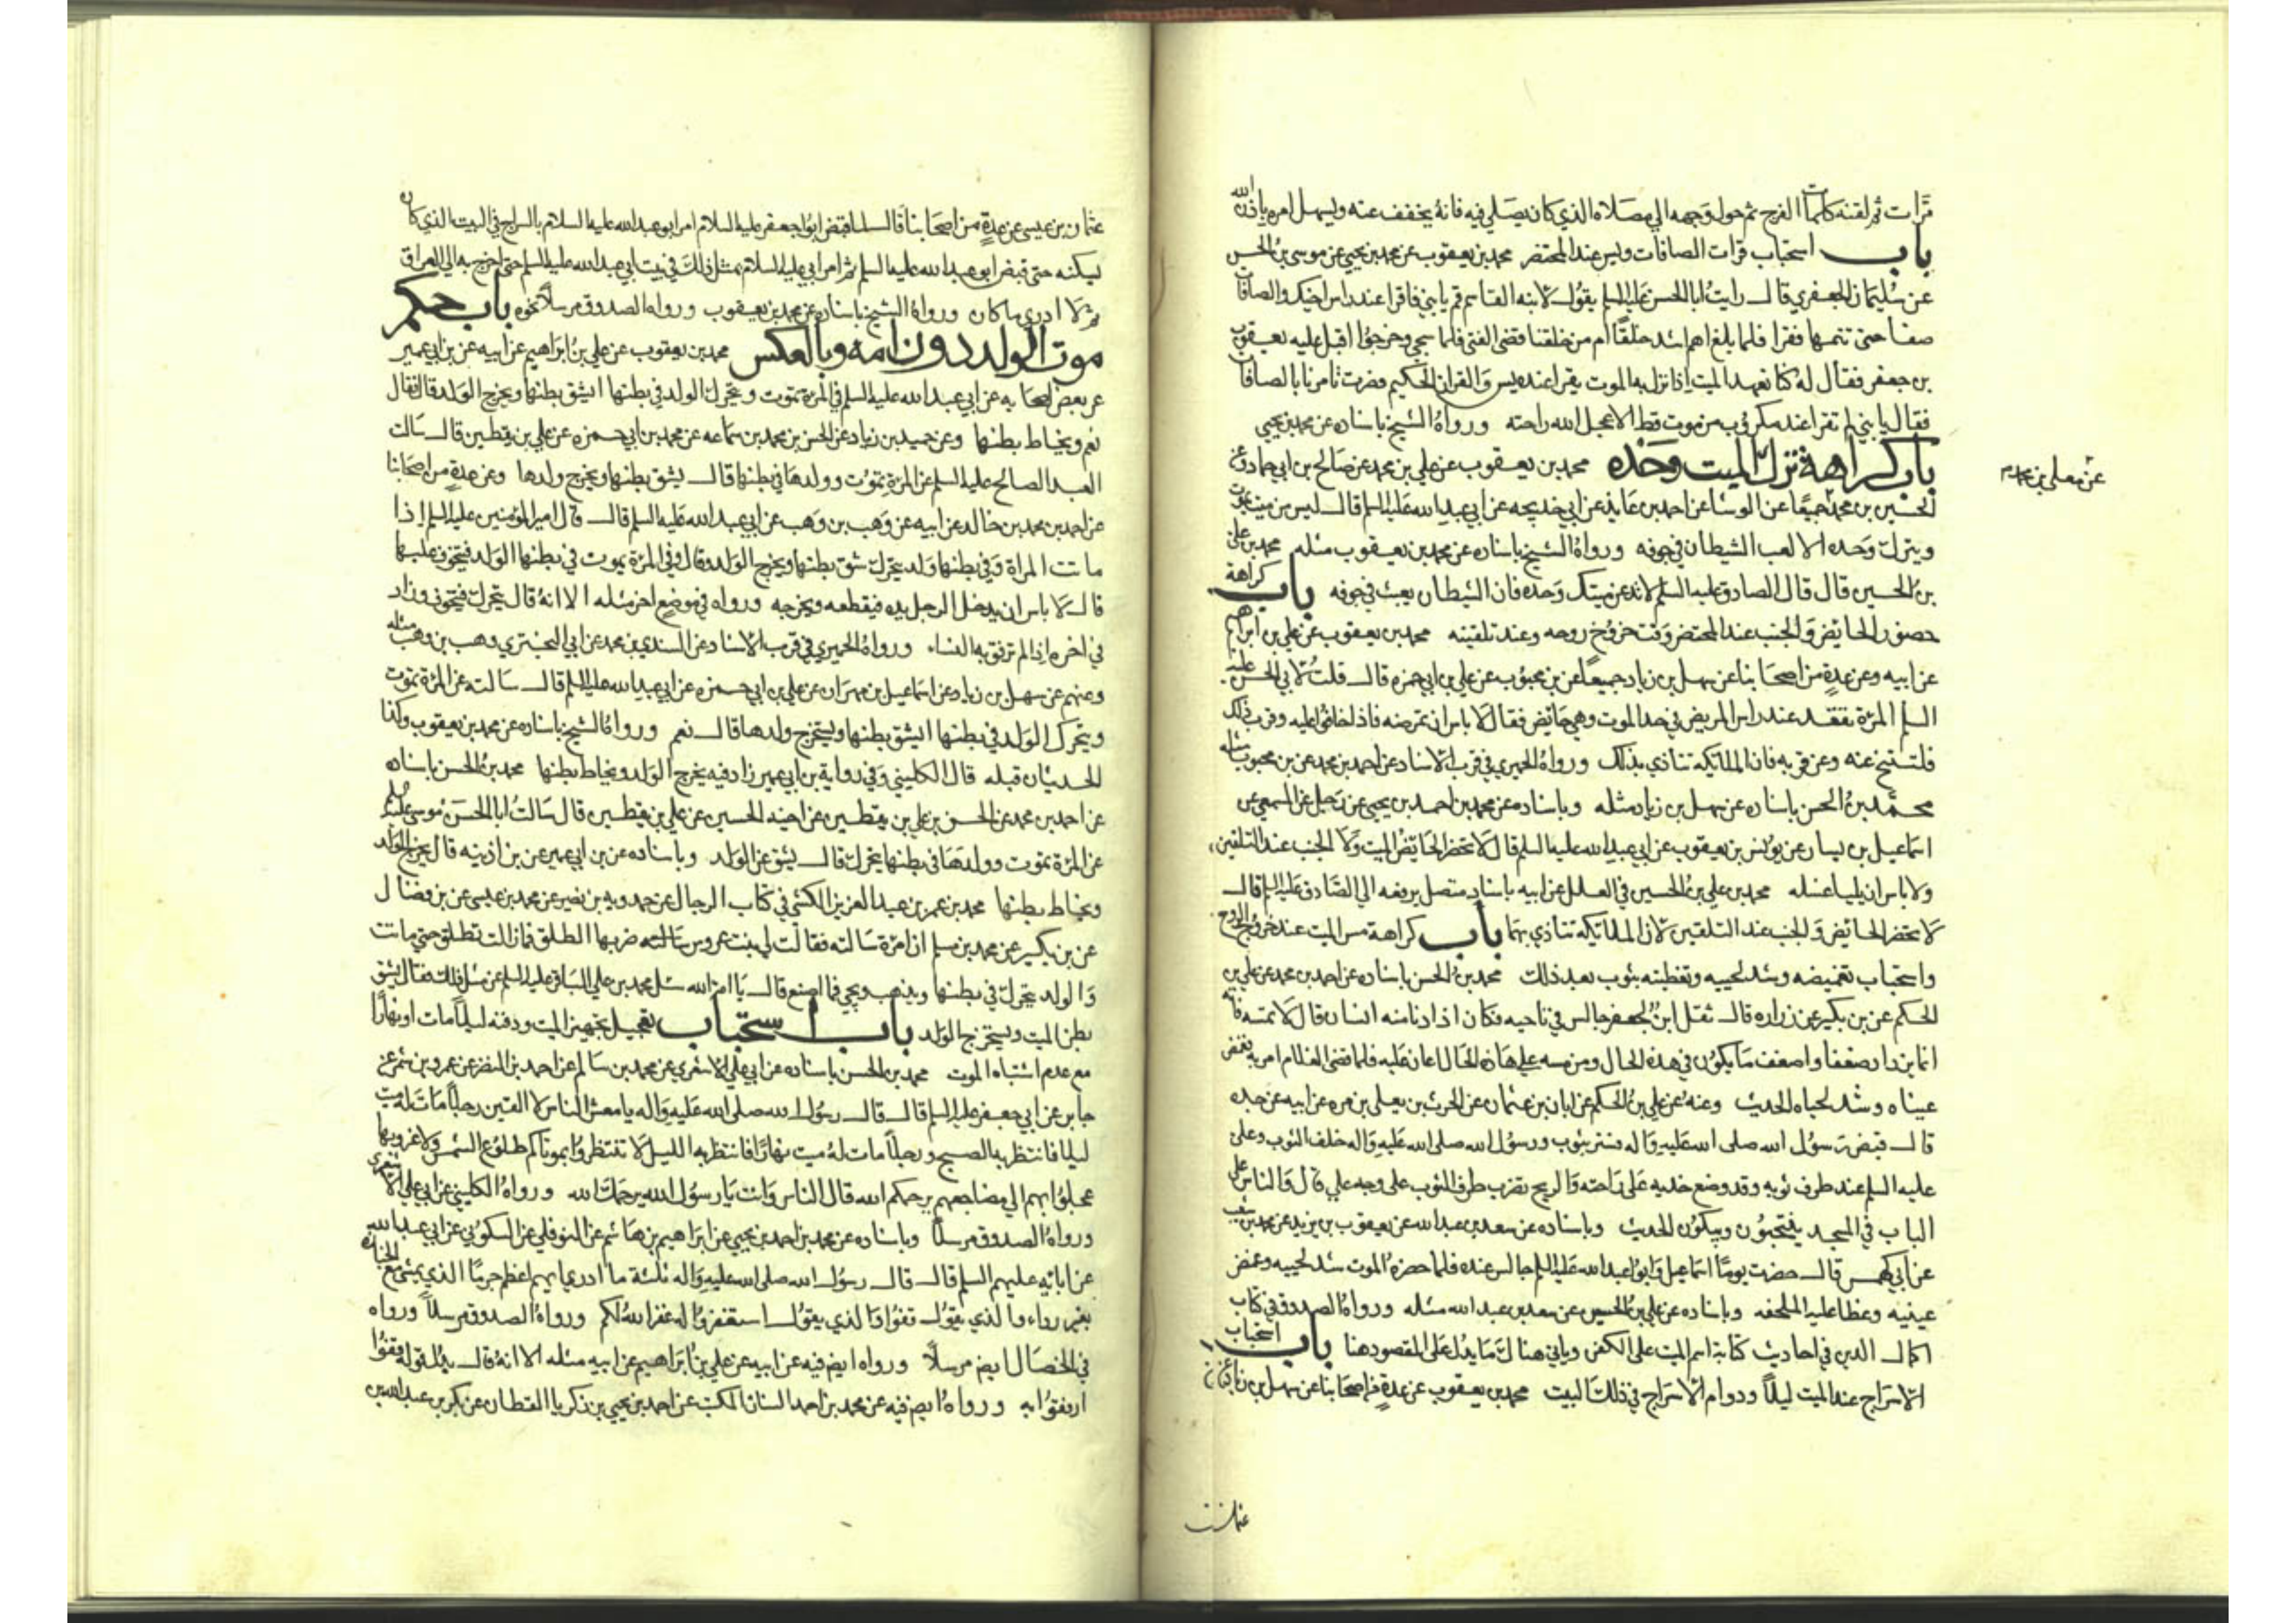 مرات ثم لقنه كلمات الفرج ثم حول وجهه الي مصلاه الذي كان يصلي فيه فانه يخفف عنه ويسهل امره باذن الله
باب استحباب قرات الصافات ويس عند المحتضر محمد بن يعقوب عن محمد بن يحيي عن موسى بن الحسن
عن سليمان الجعفري قال رايت ابا الحسن عليه السلم يقول لابنه القاسم قم يا بني فاقرا عند راس اخيك والصافات
صفا حتى تتمها فقرا فلما بلغ اهم اشد خلقا ام من خلقنا قضى الفتى فلما سجي وخرجوا اقبل عليه يعقوب
بن جعفر فقال له كنا نعهد الميت اذا نزل به الموت يقرا عنده يس والقران الحكيم فصرت تامرنا بالصافات
فقال يا بني لم تقرا عند مكروب من موت قط الا عجل الله راحته ورواه الشيخ باسناده عن محمد بن يحيي
باب كراهة ترك الميت وحده محمد بن يعقوب عن علي بن محمد عن صالح بن ابي حماد وعن
عن معلى بن محمد
الحسين بن محمد جميعا عن الوشا عن احمد بن عايذ عن ابي خديجه عن ابي عبد الله عليه السلم قال ليس من ميت يموت
ويترك وحده الا لعب الشيطان في جوفه ورواه الشيخ باسناده عن محمد بن يعقوب مثله محمد بن علي
بن الحسين قال قال الصادق عليه السلم لا تدعن ميتك وحده فان الشيطان يعبث في جوفه باب كراهة
حضور الحايض والجنب عند المحتضر وقت خروج روحه وعند تلقينه محمد بن يعقوب عن علي بن ابراهيم
عن ابيه وعن عدة من اصحابنا عن سهل بن زياد جميعا عن بن محبوب عن علي بن ابي حمزه قال قلت لابي الحسن عليه
السلم المرة تقعد عند راس المريض في حد الموت وهي حايض فقال لا باس ان تمرضه فاذا خافوا عليه وقرب ذلك
فلتتنح عنه وعن قربه فان الملايكه تتاذي بذلك ورواه الحميري في قرب الاسناد عن احمد بن محمد عن بن محبوب مثله
محمد بن الحسن باسناده عن سهل بن زياد مثله وباسناده عن محمد بن احمد بن يحيي عن رجل عن المسمعي عن
اسماعيل بن يسار عن يونس بن يعقوب عن ابي عبد الله عليه السلم قال لا تحضر الحايض الميت ولا الجنب عند التلقين
ولا باس ان يليا غسله محمد بن علي بن الحسين في العلل عن ابيه باسناد متصل يرفعه الي الصادق عليه السلم قال
لا تحضر الحائض والجنب عند التلقين لان الملائكة تتاذي بهما باب كراهة مس الميت عند خروج الروح
واستحباب تغميضه وشد لحييه وتغطيته بثوب بعد ذلك محمد بن الحسن باسناده عن احمد بن محمد عن علي بن
الحكم عن بن بكير عن زراره قال ثقل ابن لجعفر وجالس في ناحيه فكان اذا دنا منه انسان قال لا تمسه فانه
انما يزداد ضعفا واضعف ما يكون في هذه الحال ومن مسه علي هذه الحال اعان عليه فلما قضى الغلام امر به فغمض
عيناه وشد لحياه الحديث وعنه عن علي بن الحكم عن ابان بن عثمان عن الحرث بن يعلى بن مره عن ابيه عن جده
قال قبض رسول الله صلى الله عليه واله فستر بثوب ورسول الله صلى الله عليه واله خلف الثوب وعلي
عليه السلم عند طرف ثوبه وقد وضع خديه على راحته والريح تضرب طرف الثوب على وجه علي قال والناس على
الباب في المسجد ينتحبون ويبكون الحديث وباسناده عن سعد بن عبد الله عن يعقوب بن يزيد عن محمد بن شعيب
عن ابي كهمس قال حضرت يوما اسماعيل وابو عبد الله عليه السلم جالس عنده فلما حضره الموت شد لحييه وغمض
عينيه وغطا عليه الملحفه وباسناده عن علي بن الحسين عن سعد بن عبد الله مثله ورواه الصدوق في كتاب
اكمال الدين في احاديث كتابة اسم الميت على الكفن وياتي هناك ما يدل على المقصود هنا باب استحباب
الاسراج عند الميت ليلا ودوام الاسراج في ذلك البيت محمد بن يعقوب عن عدة من اصحابنا عن سهل بن زياد عن
عثمان بن عيسى عن عدة من اصحابنا قال لما قبض ابو جعفر عليه السلام امر ابو عبد الله عليه السلام بالسراج في البيت الذي كان
يسكنه حتى قبض ابو عبد الله عليه السلم ثم امر ابي عليه السلام بمثل ذلك في بيت ابي عبد الله عليه السلم حتى اخرج به الي العراق
ثم لا ادري ما كان ورواه الشيخ باسناده عن محمد بن يعقوب ورواه الصدوق مرسلا نحوه باب حكم
موت الولد دون امه وبالعكس محمد بن يعقوب عن علي بن ابراهيم عن ابيه عن بن ابي عمير
عن بعض اصحابه عن ابي عبد الله عليه السلم في المرة تموت ويتحرك الولد في بطنها ايشق بطنها ويخرج الولد قال فقال
نعم ويخاط بطنها وعن حميد بن زياد عن الحسن بن محمد بن سماعه عن محمد بن ابي حمزه عن علي بن يقطين قال سالت
العبد الصالح عليه السلم عن المرة تموت وولدها في بطنها قال يشق بطنها ويخرج ولدها وعن عدة من اصحابنا
عن احمد بن محمد بن خالد عن ابيه عن وهب بن وهب عن ابي عبد الله عليه السلم قال قال امير المؤمنين عليه السلم اذا
ماتت المراة وفي بطنها ولد يتحرك شق بطنها ويخرج الولد وقال في المرة يموت في بطنها الولد فيتخوف عليها
قال لا باس ان يدخل الرجل يده فيقطعه ويخرجه ورواه في موضع اخر مثله الا انه قال يتحرك فيتخوف وزاد
في اخره اذا لم ترفق به النساء ورواه الحميري في قرب الاسناد عن السندي بن محمد عن ابي البختري وهب بن وهب مثله
وعنهم عن سهل بن زياد عن اسماعيل بن مهران عن علي بن ابي حمزه عن ابي عبد الله عليه السلم قال سالته عن المرة تموت
ويتحرك الولد في بطنها ايشق بطنها ويستخرج ولدها قال نعم ورواه الشيخ باسناده عن محمد بن يعقوب وكذا
الحديثان قبله قال الكليني وفي رواية بن ابي عمير زاد فيه يخرج الولد ويخاط بطنها محمد بن الحسن باسناده
عن احمد بن محمد عن الحسن بن علي بن يقطين عن اخيه الحسين عن علي بن يقطين قال سالت ابا الحسن موسى عليه السلم
عن المرة تموت وولدها في بطنها يتحرك قال يشق عن الولد وباسناده عن بن ابي عمير عن بن اذينه قال يخرج الولد
ويخاط بطنها محمد بن عمر بن عبد العزيز الكشي في كتاب الرجال عن حمدويه بن نصير عن محمد بن عيسى عن بن فضال
عن بن بكير عن محمد بن مسلم ان امرة سالته فقالت لي بنت عروس ضربها الطلق فما زالت تطلق حتى ماتت
والولد يتحرك في بطنها ويذهب ويجي فما اصنع قال يا امة الله سئل محمد بن علي الباقر عليه السلم عن مثل ذلك فقال يشق
بطن الميت ويستخرج الولد باب استحباب تعجيل تجهيز الميت ودفنه ليلا مات او نهارا
مع عدم اشتباه الموت محمد بن الحسن باسناده عن ابي علي الاشعري عن محمد بن سالم عن احمد بن النضر عن عمرو بن شمر عن
جابر عن ابي جعفر عليه السلم قال قال رسول الله صلى الله عليه واله يا معشر الناس لا الفين رجلا مات له ميت
ليلا فانتظر به الصبح ورجلا مات له ميت نهارا فانتظر به الليل لا تنتظروا بموتاكم طلوع الشمس ولا غروبها
عجلوا بهم الي مضاجعهم يرحمكم الله قال الناس وانت يا رسول الله يرحمك الله ورواه الكليني عن ابي علي الاشعري
ورواه الصدوق مرسلا وباسناده عن محمد بن احمد بن يحيي عن ابراهيم بن هاشم عن النوفلي عن السكوني عن ابي عبد الله
عن ابائه عليهم السلم قال قال رسول الله صلى الله عليه واله ثلثة ما ادري ايهم اعظم جرما الذي يمشي مع الجنازة
بغير رداء والذي يقول قفوا والذي يقول استغفروا له غفر الله لكم ورواه الصدوق مرسلا ورواه
في الخصال ايض مرسلا ورواه ايض فيه عن ابيه عن علي بن ابراهيم عن ابيه مثله الا انه قال بدل قوله قفوا
ارفقوا به ورواه ايض فيه عن محمد بن احمد السنان المكتب عن احمد بن يحيي بن زكريا القطان عن بكر بن عبد الله بن